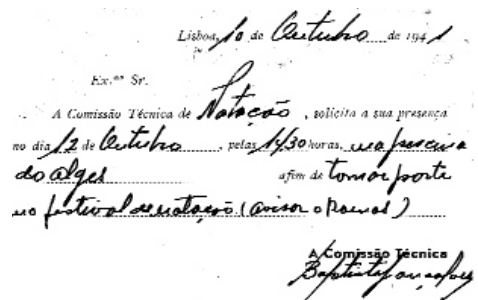 Lisboa, 10 de Outubro de 1941
Ex.mo Sr.
A Comissão Técnica de Natação, solicita a sua presença
no dia 12 de Outubro, pelas 14/30 horas, na piscina
do Algés afim de tomar parte
no festival de natação (avisar o
A Comissão Técnica
Baptista Gonçalves